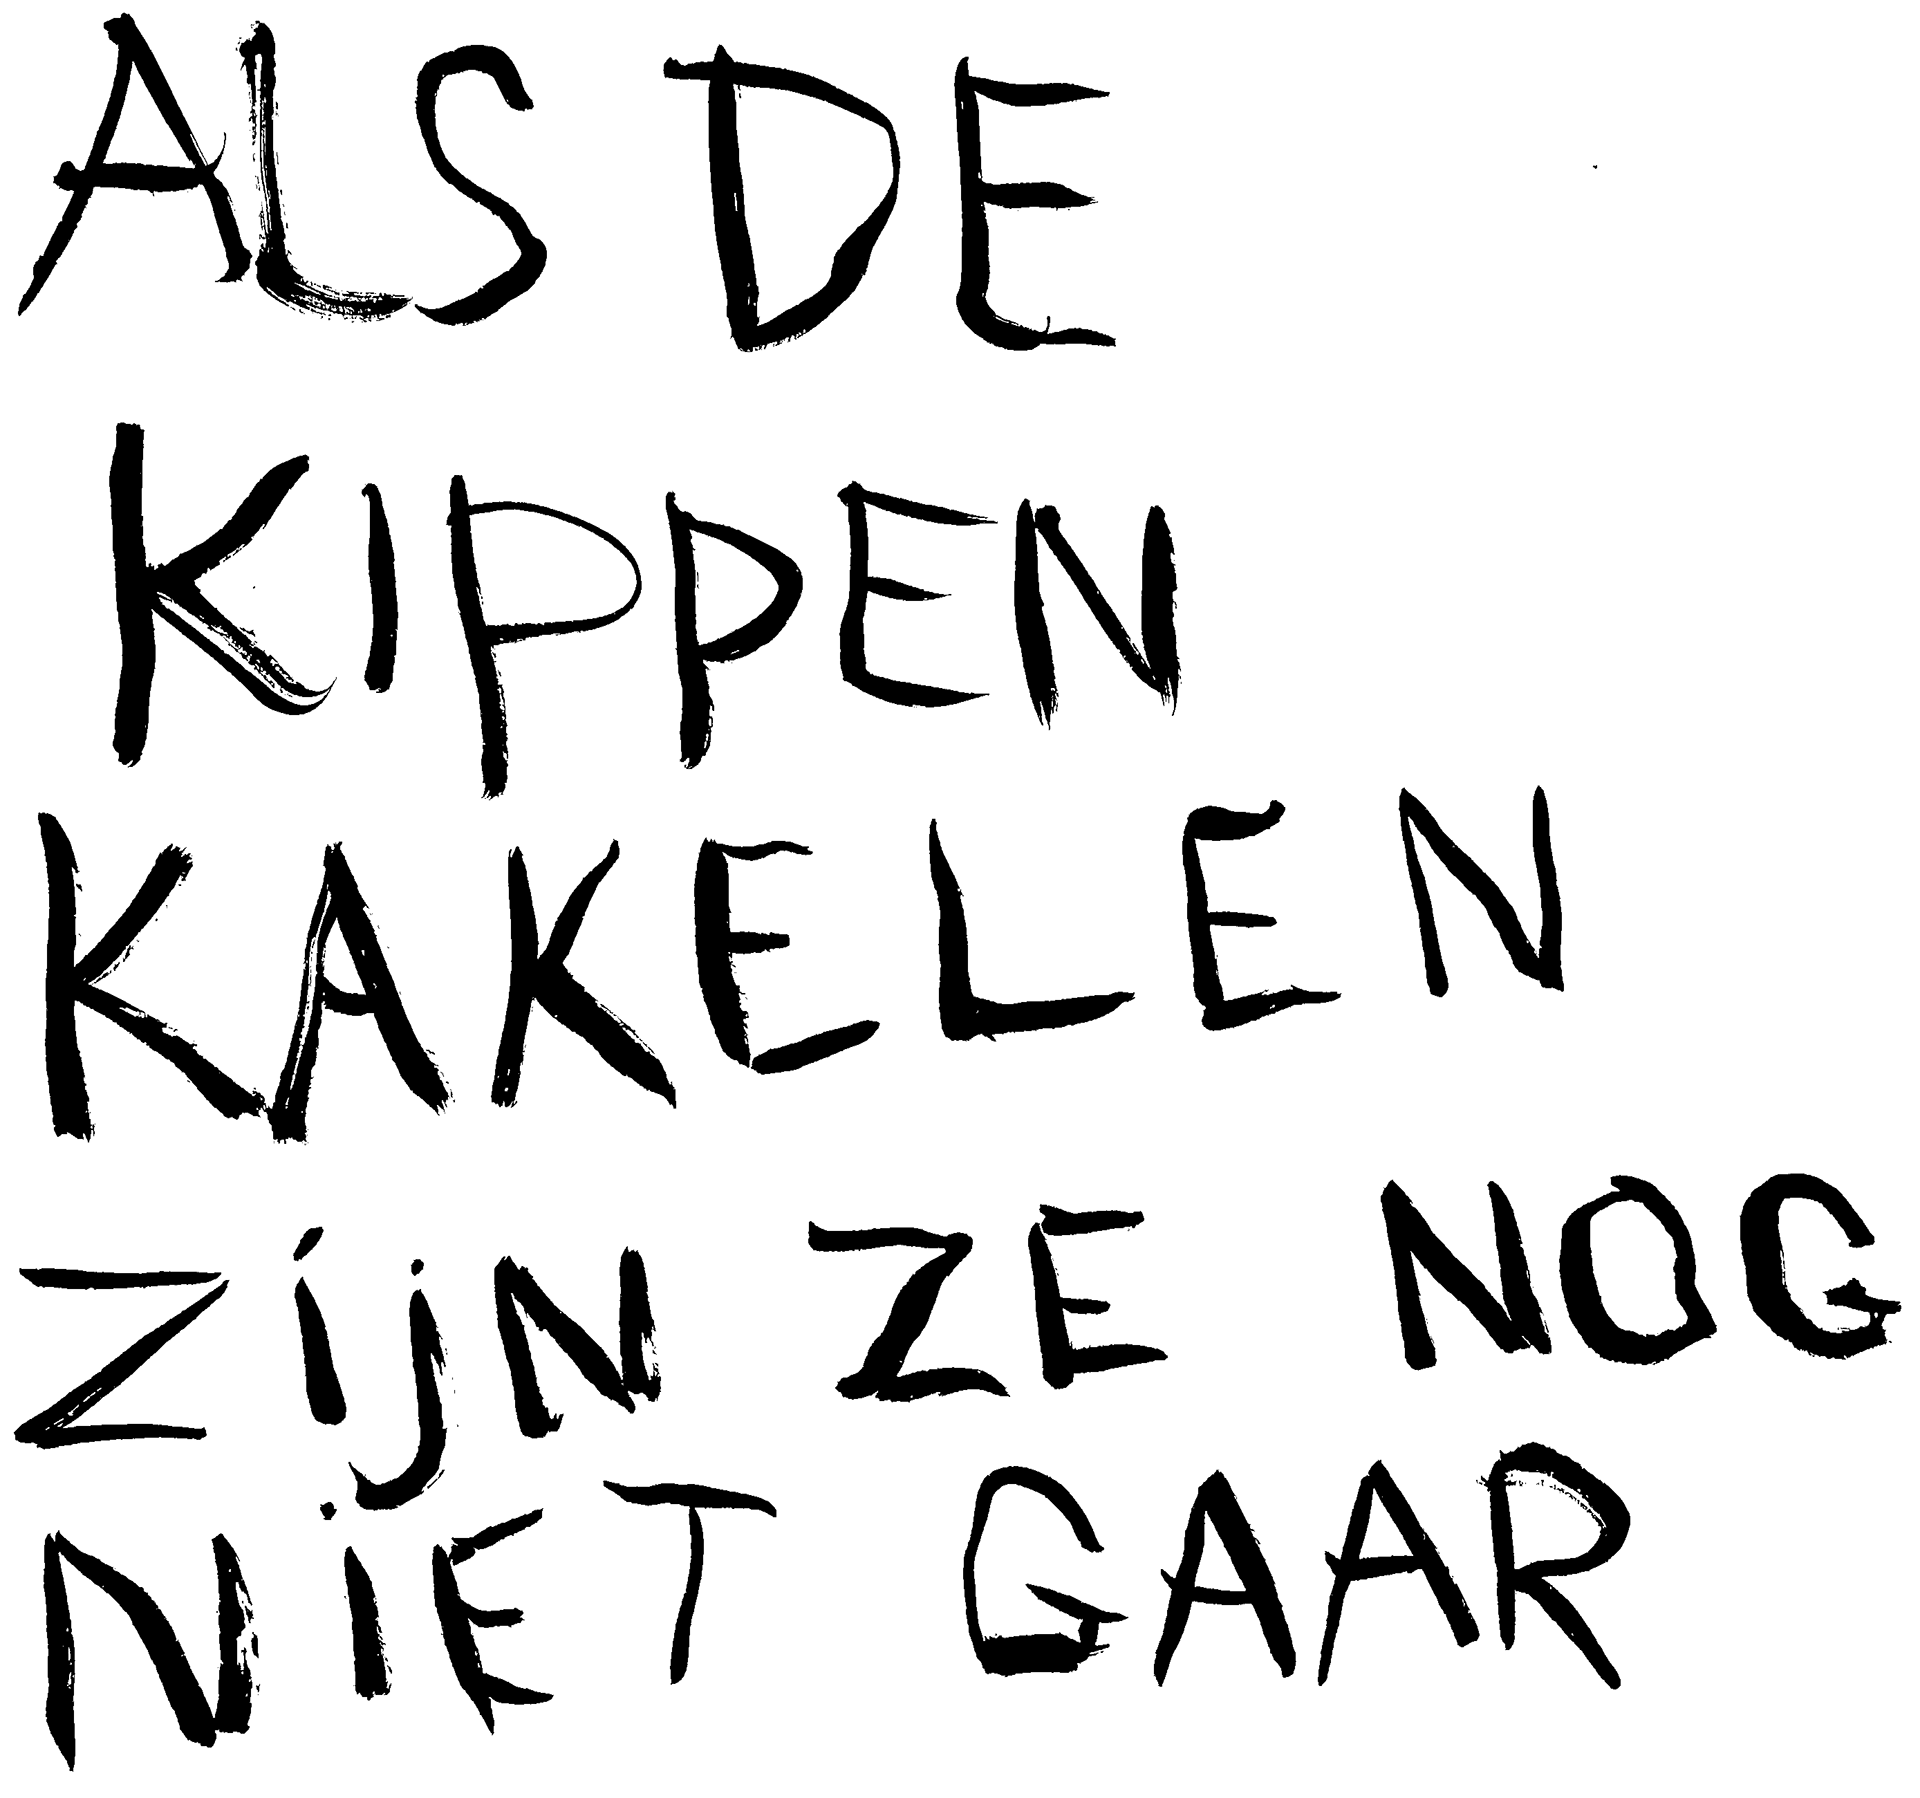 ALS DE
KIPPEN
KAKELEN
ZijN ZE NOG
NiET GAAR